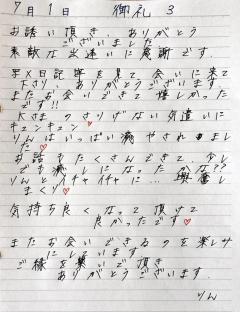 7月1日 御礼 3
お誘い頂き、ありがとう
ございました
素敵な出逢いに感謝です。
写メ日記等を見て会いに来て
下さり、ありがとうございます
またお会いできて嬉しかった
です!!
Kさまのさりげない気遣いに
キュンキュン♥
りんはいっぱい癒やされました
♥
お話もたくさんできて、少し
でも癒しになったかな??
りんとイチャイチャに…興奮し
まくり♥
気持ち良くなって頂けて
良かったです♥
またお会いできるのを楽しみ
にしています
ご縁を繋いで頂き
ありがとうございます。
りん